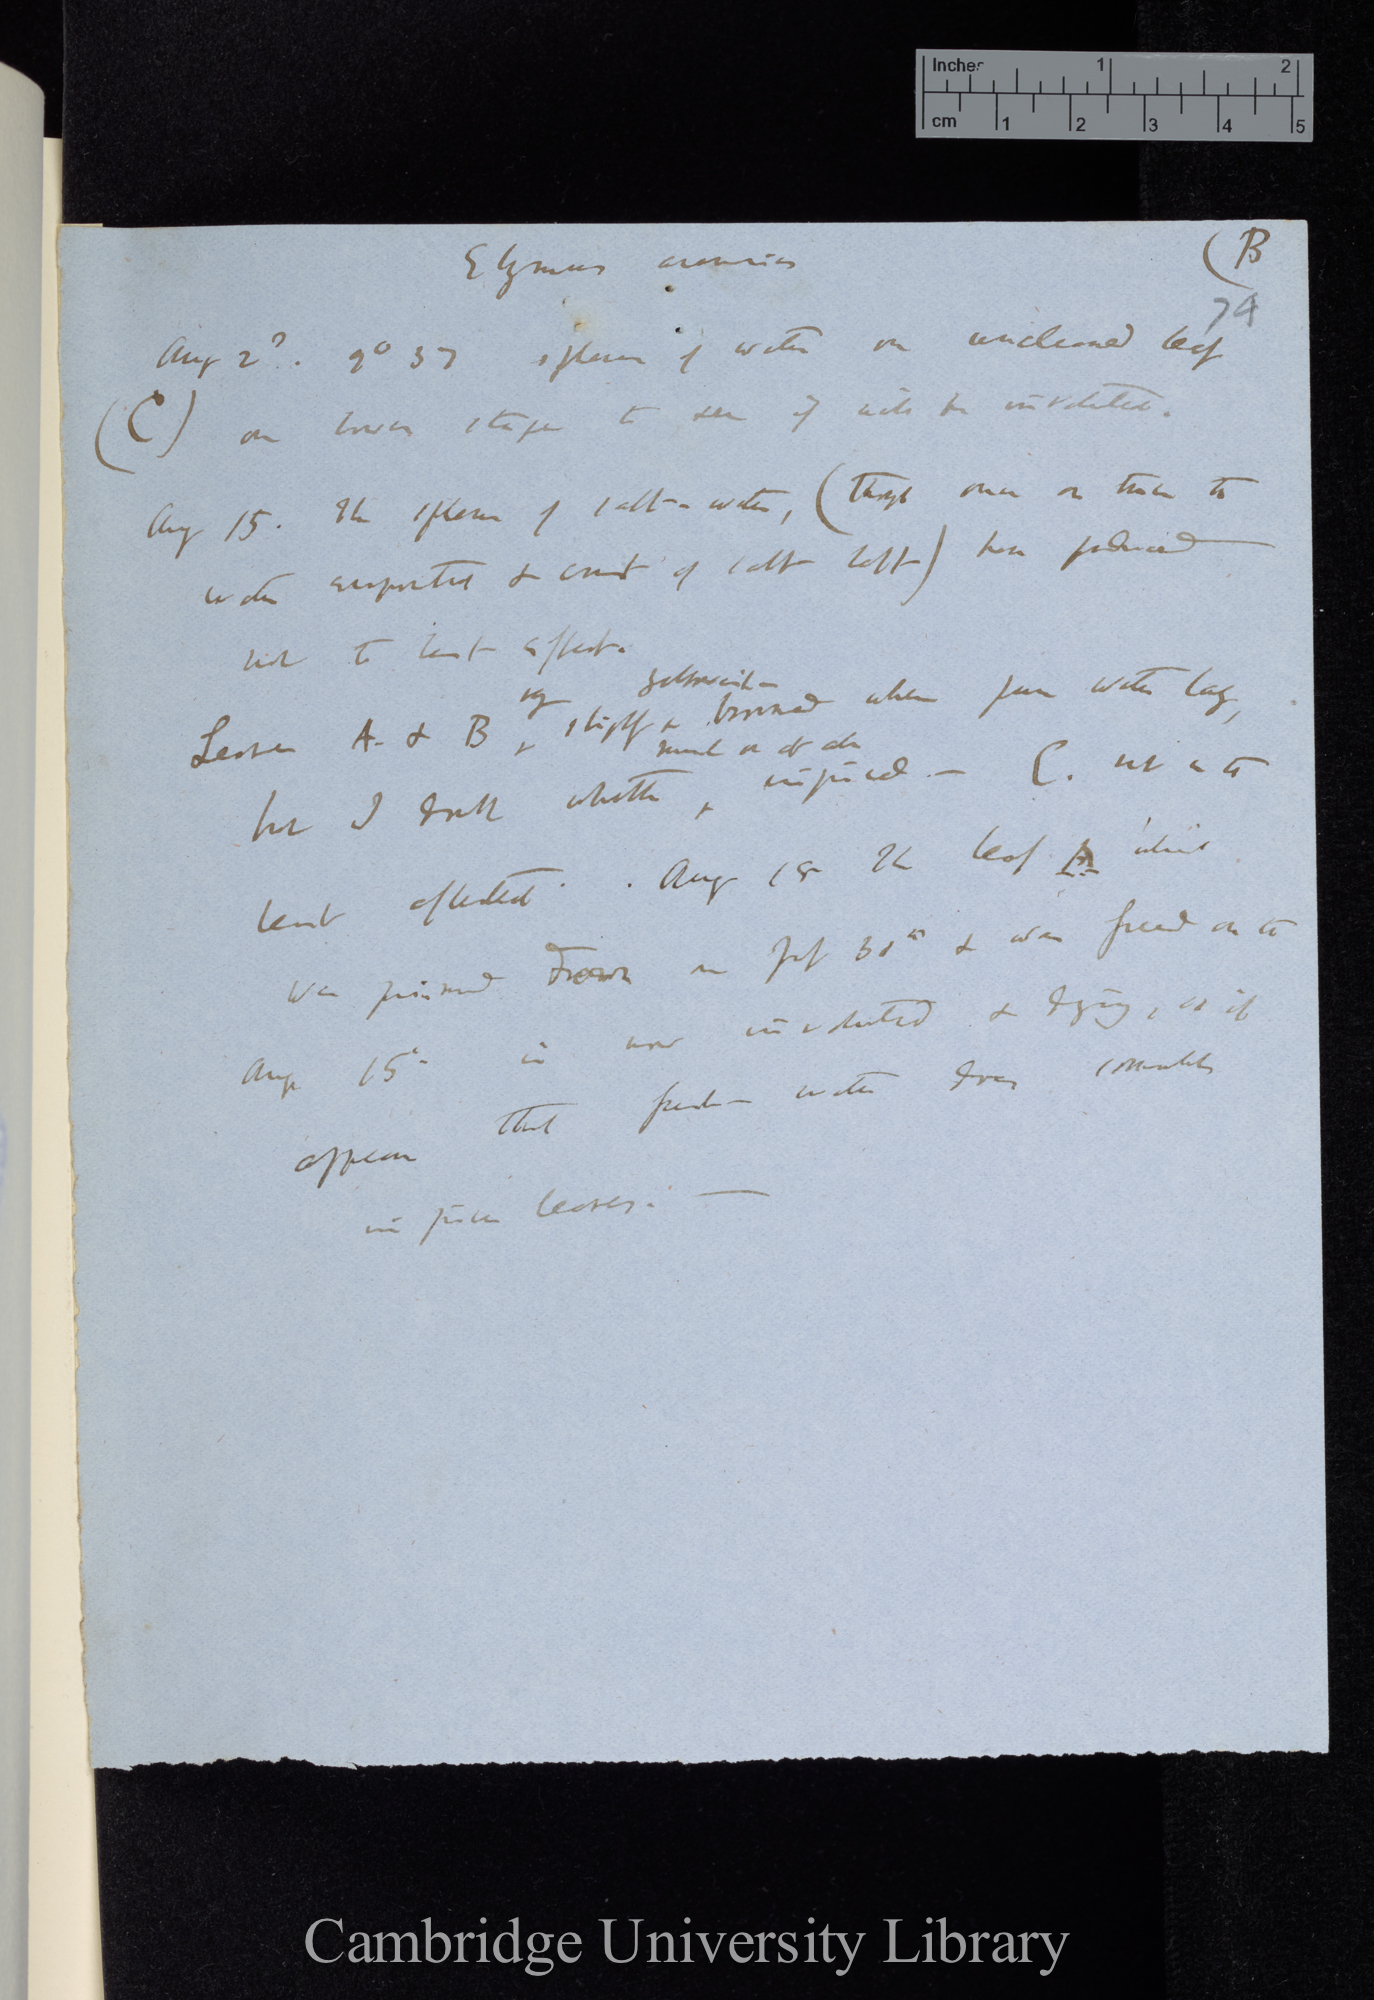 Inches 1 2
cm 1 2 3 4 5
Elymus arenarius (B
74
Aug 2?. 9° 37 sphere of water on uncleaned leaf
(C) on lower stage to see if will be involuted.
Aug 15. The sphere of salt-water, (though once or twice the
water evaporated & crust of salt left) has produced
not the least effect.
Leaves A. & B slightly browned where pure water lay,
but I doubt whether injured — C. not in the
much or at all
least affected. Aug 18 The leaf A which
was pinned down on July 30th & was freed on the
Aug 15th is now involuted & dying, so it
appears that fresh water does
injure leaves. —
Cambridge University Library